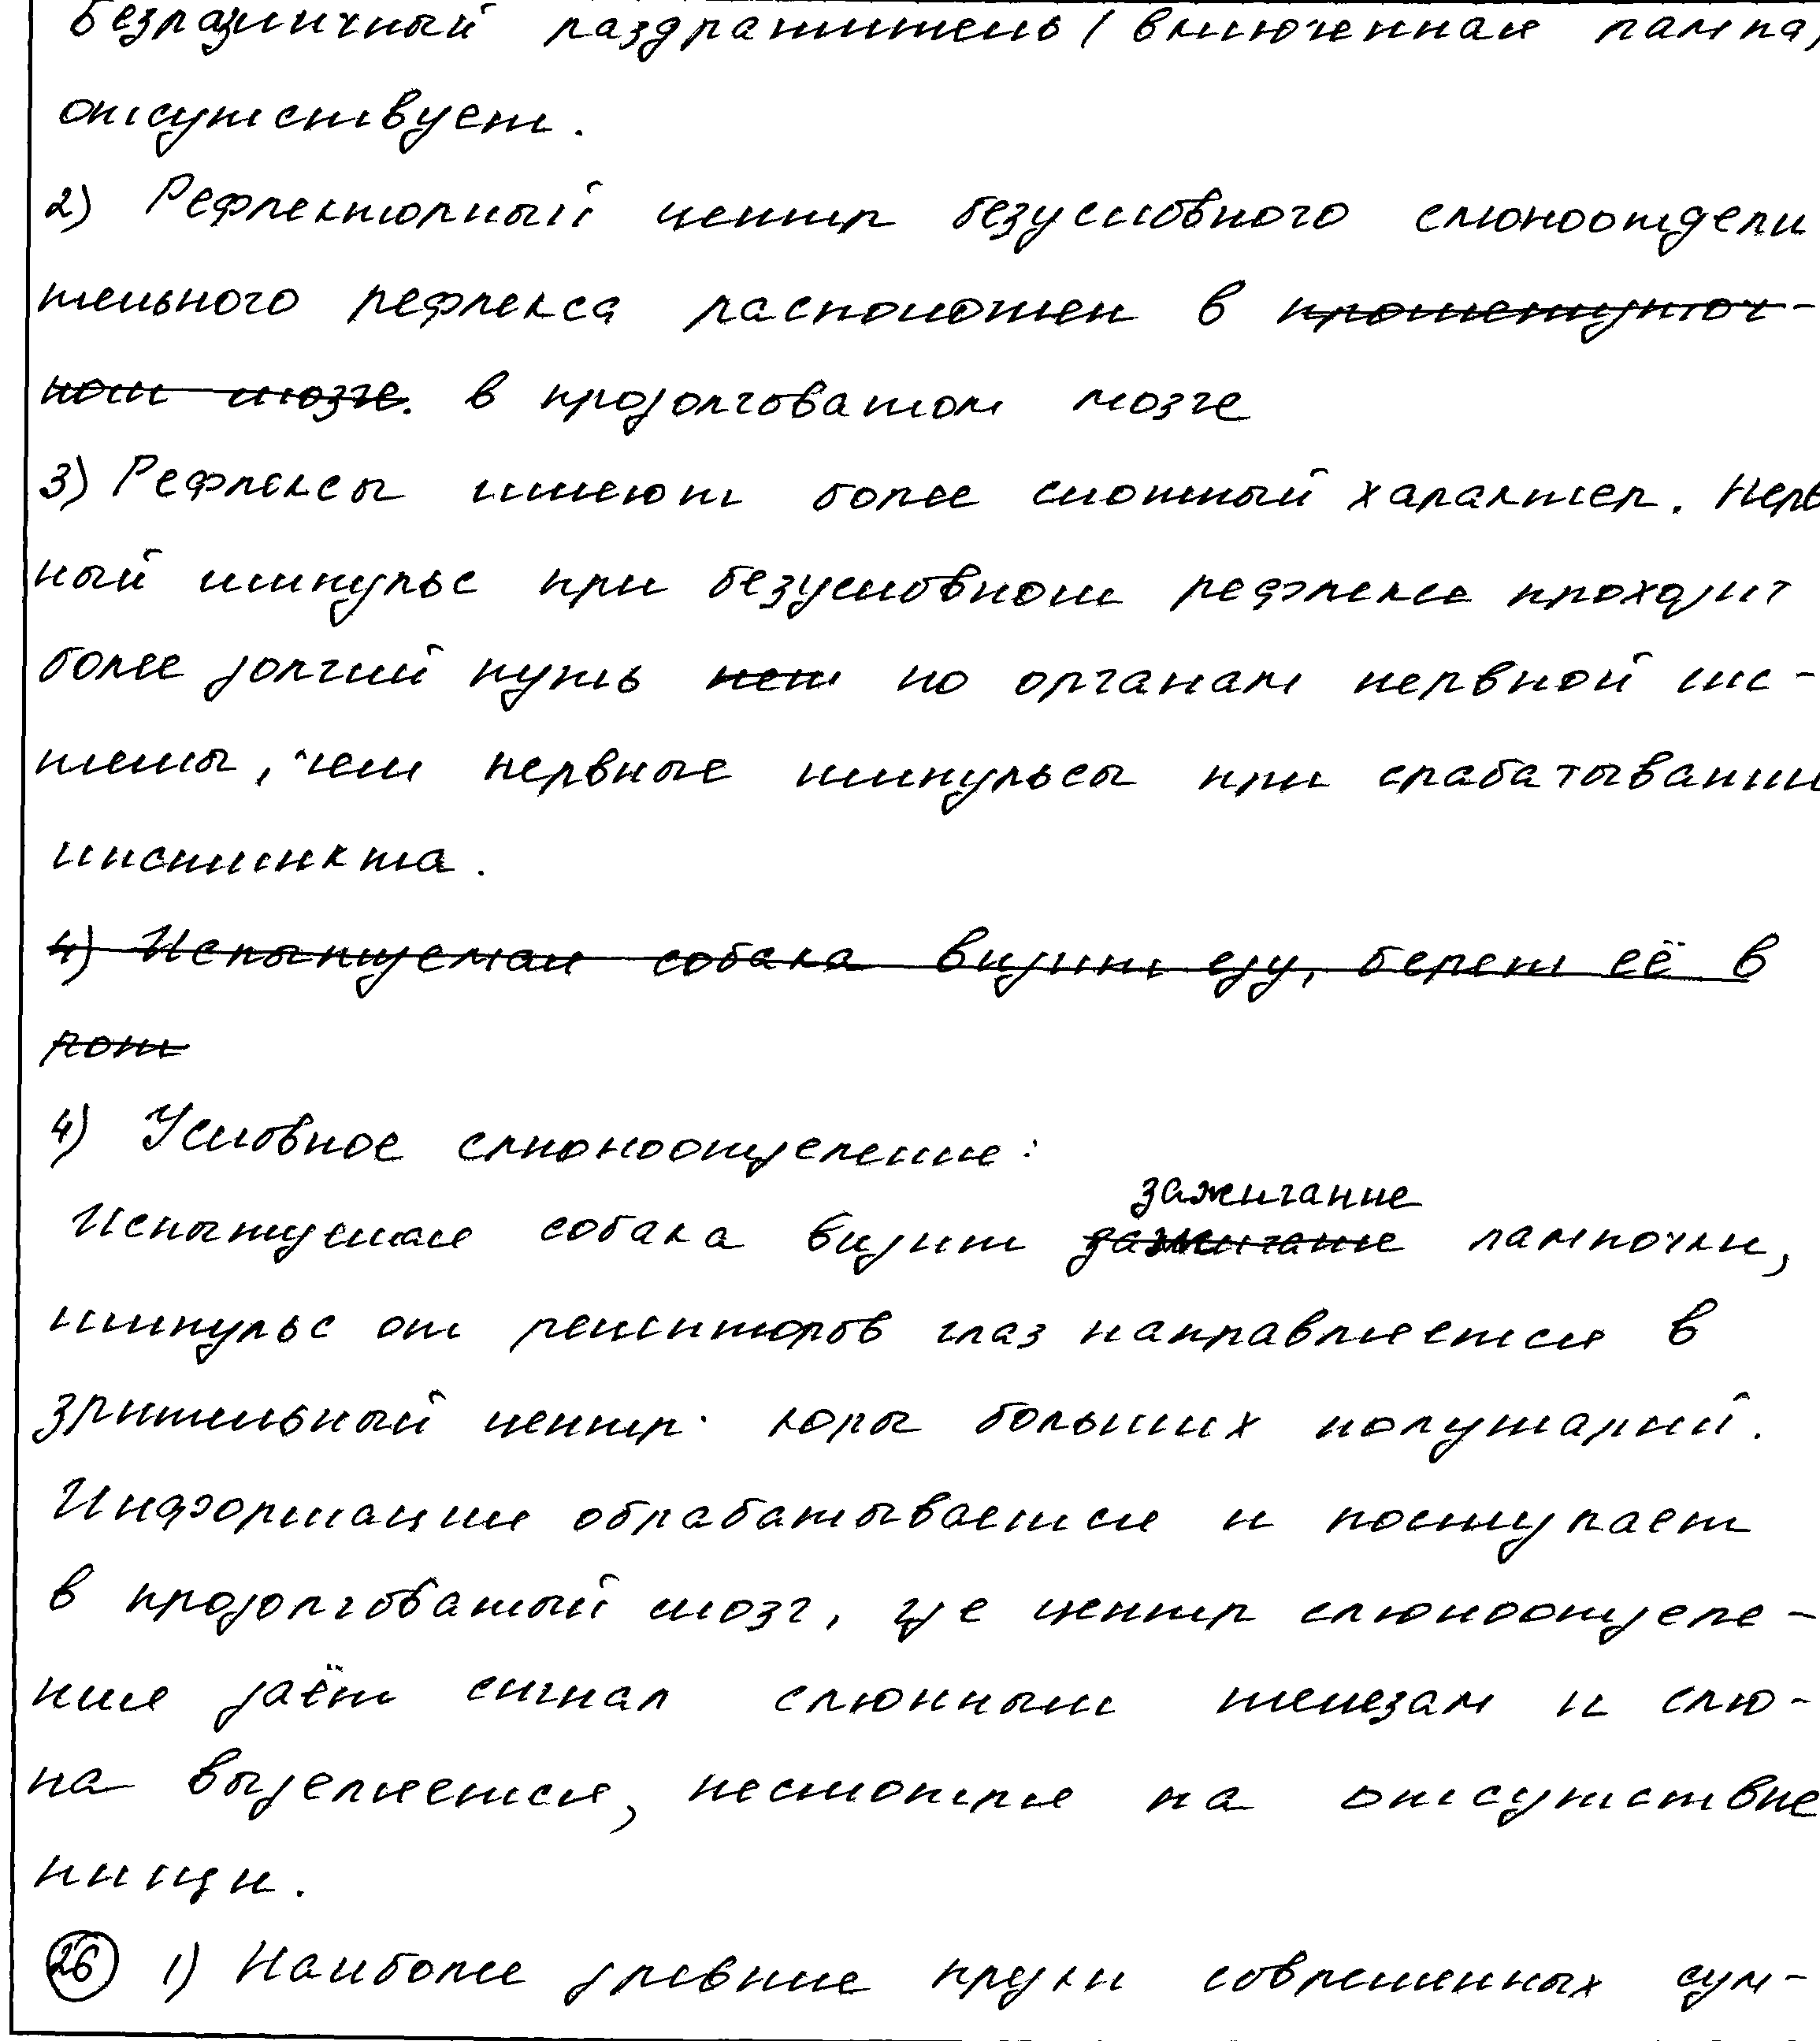 безразличный раздражитель (включенная лампа)
отсутствует.
2) Рефлекторный центр безусловного слюноотдели
тельного рефлекса расположен в промежуточ-
ном мозге. в продолговатом мозге
3) Рефлексы имеют более сложный характер. Нерв
ный импульс при безусловном рефлексе проходит
более долгий путь нет по органам нервной сис-
темы, чем нервные импульсы при срабатывании
инстинкта.
4) Испытуемая собака видит еду, берет её в
рот
4) Условное слюноотделение:
зажигание
Испытуемая собака видит зажигание лампочки,
импульс от рецепторов глаз направляется в
зрительный центр коры больших полушарий.
Информация обрабатывается и поступает
в продолговатый мозг, где центр слюноотделе-
ния даёт сигнал слюнным железам и слю-
на выделяется, несмотря на отсутствие
пищи.
26 1) Наиболее древние предки современных сум-